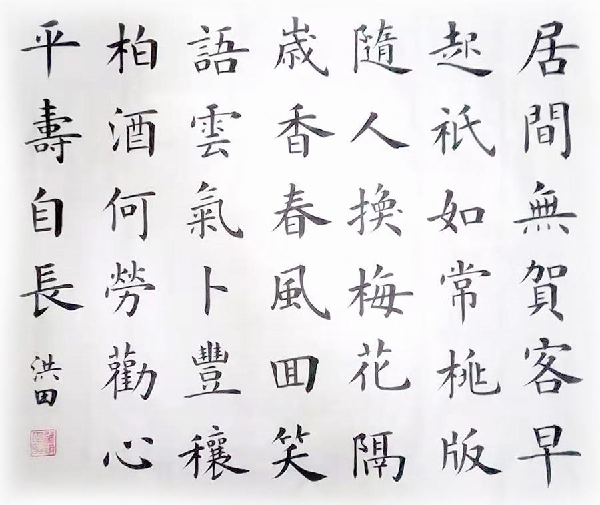 居間無賀客早
起祇如常桃版
隨人換梅花隔
歲香春風回笑
語雲氣卜豐穰
柏酒何勞勸心
平壽自長
洪田